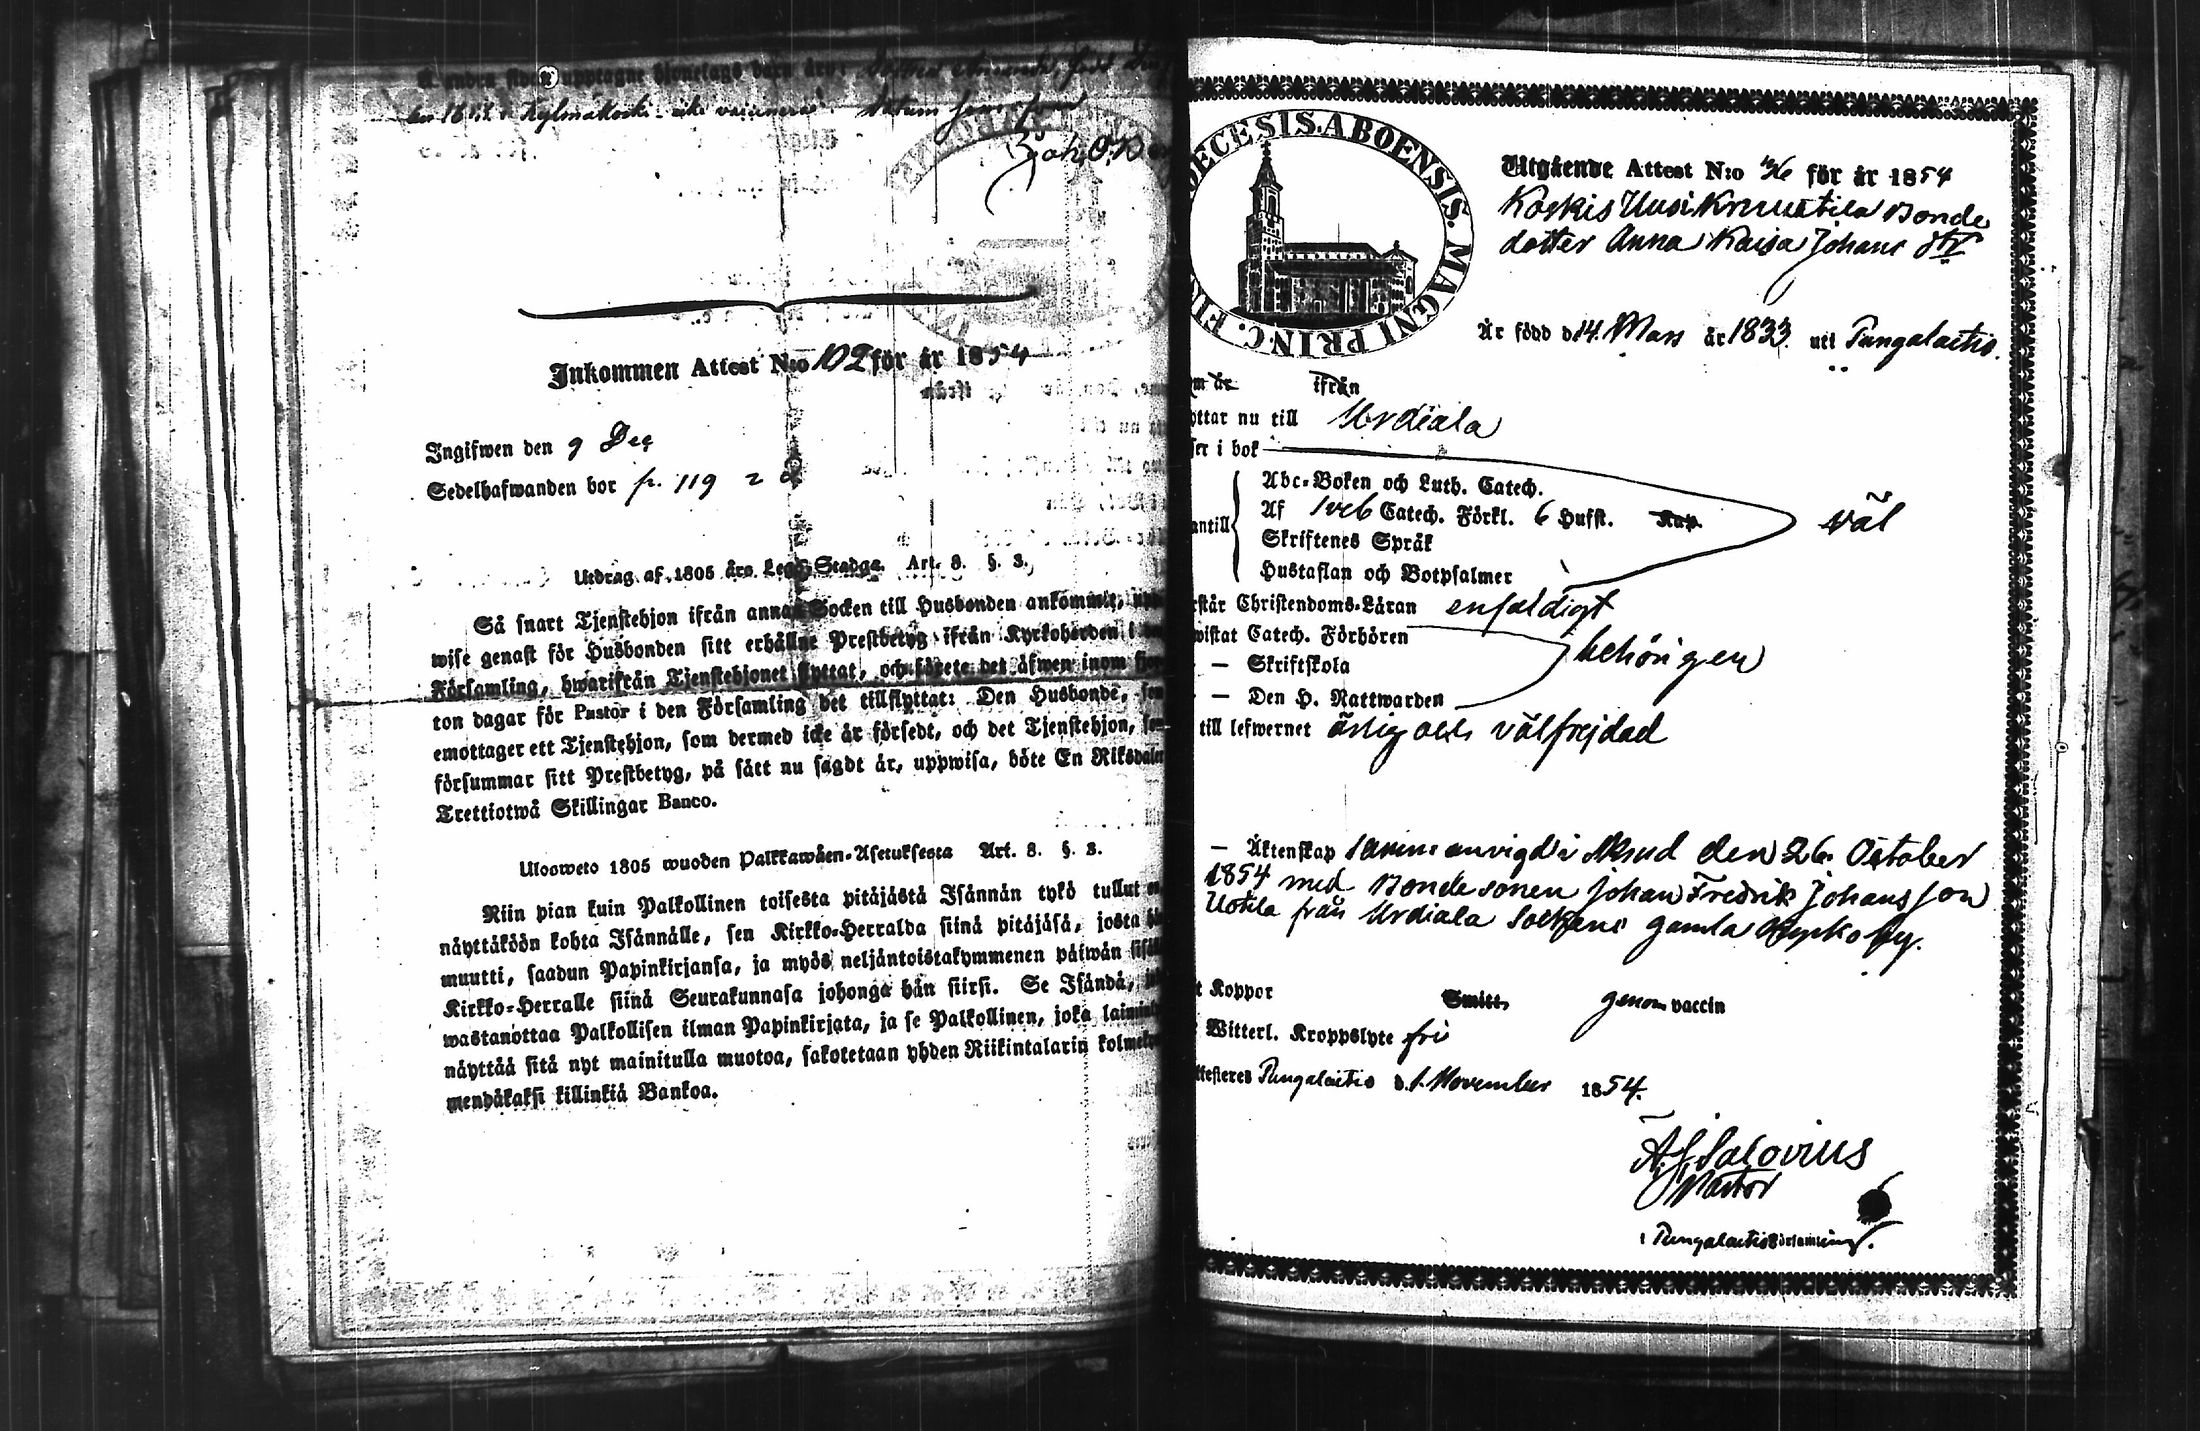 den 18 i Kylmäkoski
Inkommen Attest N:o 102 för år 1854
Ingifwen den 9 Dec
Sedelhafwanden bor p. 119
Utdrag af 1805 års Lego-Stadga. Art. 8. §. 3.
Så snart Tjenstehjon ifrån annan Socken till Husbonden ankommit, upp-
wise genast för Husbonden sitt erhållne Prestbetyg ifrån Kyrkoherden i
Församling, hwarifrån Tjenstehjonet flyttat, och förete det äfwen inom fjor-
ton dagar för Pastor i den Församling det tillflyttat: Den Husbonde, som
emottager ett Tjenstehjon, som dermed icke är försedt, och det Tjenstehjon, som
försummar sitt Prestbetyg, på sätt nu sagdt är, uppwisa, böte En Riksdaler
Trettiotwå Skillingar Banco.
Ulosweto 1805 wuoden Palkkawäen-Asetuksesta Art. 8. §. 3.
Niin pian kuin Palkollinen toisesta pitäjästä Isännän tykö tullut on,
näyttäköön kohta Isännälle, sen Kirkko-Herralda siinä pitäjäsä, josta hän
muutti, saadun Papinkirjansa, ja myös neljäntoistakymmenen päiwän sisäl
Kirkko-Herralle siinä Seurakunnasa johonga hän siirsi. Se Isändä, jo
wastanottaa Palkollisen ilman Papinkirjata, ja se Palkollinen, joka laimin
näyttää sitä nyt mainitulla muotoa, sakotetaan yhden Riikintalarin kolmeky
mendäkaksi killinkiä Bankoa.
DECESIS. ABOENSIS. MAGNI PRINC. FIN
Utgående Attest N:o 46 för år 1854
Koskis Uusi Knuutila Bonde
dotter Anna Kaisa Johans dtr
Är född d 14 Mars år 1833 uti Pungalaitio.
om år ifrån
yttar nu till Urdiala
ser i bok
Abc-Boken och Luth. Catech.
Af Sveb Catech. Förkl. 6 Hufst. Kap.
antill
Skriftenes Språk
Hustaflan och Botpsalmer
väl
rstår Christendoms-Läran enfaldigt
wistat Catech. Förhören
— Skriftskola
behörigen
— Den H. Nattwarden
till lefwernet ärlig och välfrejdad
— Äktenskap sammanvigd i Akud den 26 October
1854 med Bondesonen Johan Fredrik Johansson
Uotila från Urdiala Sockens gamla Kyrkoby.
t Koppor Smitt genom vaccin
Witterl. Kroppslyte fri
ttesteres Pungalaitio d. 1. November 1854.
A J Salovius
Pastor
i Pungalaitio Församling.